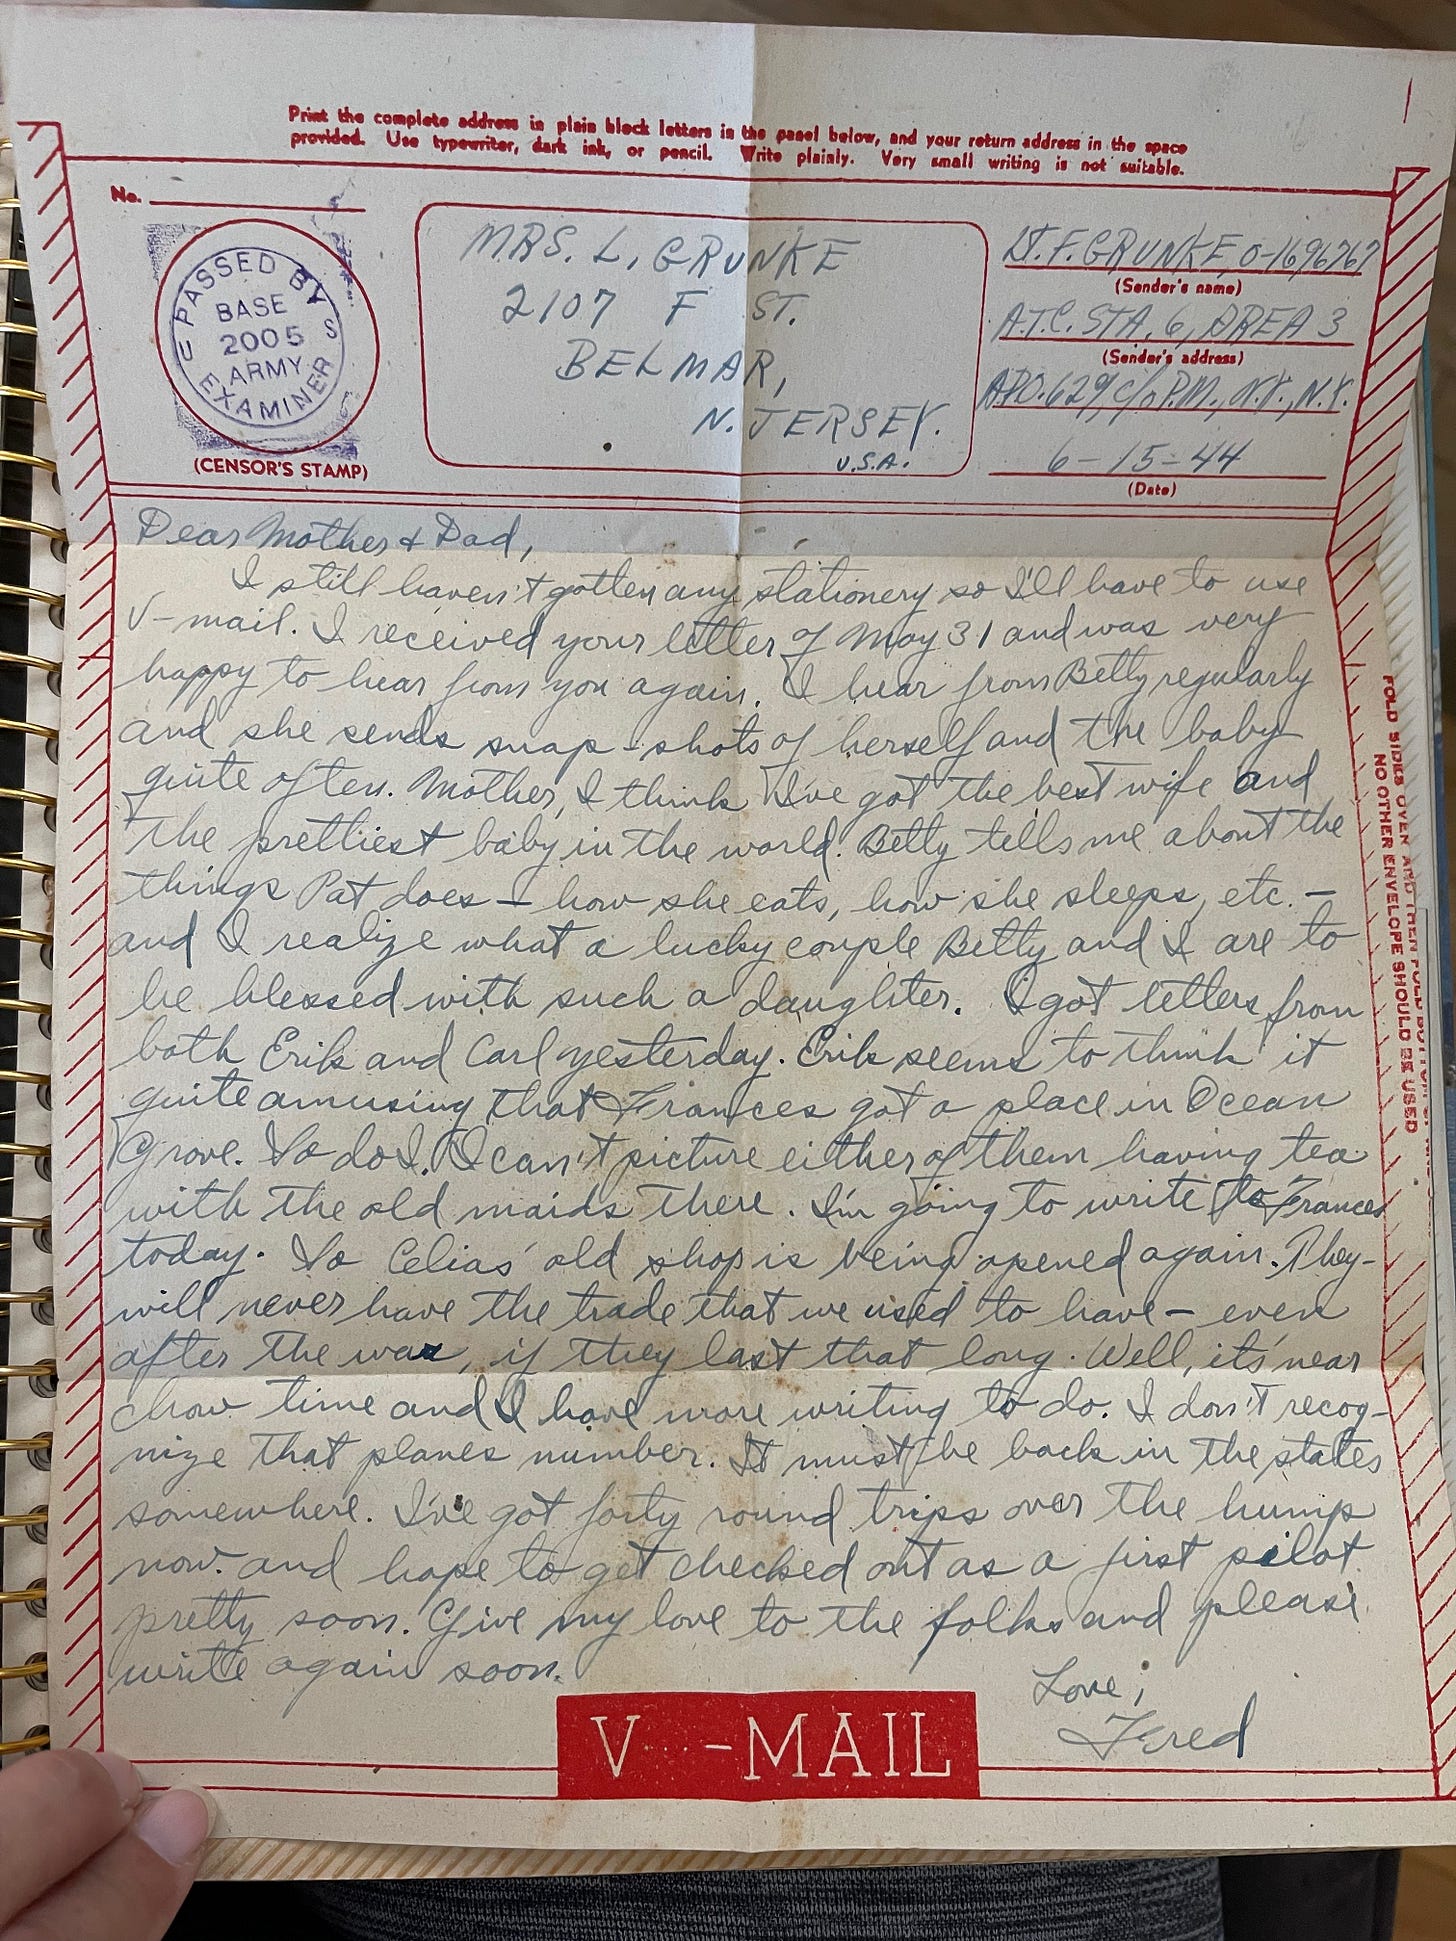 Print the complete address in plain block letters in the panel below, and your return address in the space
provided. Use typewriter, dark ink, or pencil. Write plainly. Very small writing is not suitable.
No.
PASSED BY
BASE
2005
ARMY
EXAMINER
U S
(CENSOR'S STAMP)
MRS. L. GRUNKE
2107 F ST.
BELMAR,
N. JERSEY.
U.S.A.
LT. F. GRUNKE, O-1696767
(Sender's name)
A.T.C. STA. 6, AREA 3
(Sender's address)
APO. 629, c/o P.M., N.Y., N.Y.
6-15-44
(Date)
Dear Mother & Dad,
I still haven't gotten any stationery so I'll have to use
V-mail. I received your letter of May 31 and was very
happy to hear from you again. I hear from Betty regularly
and she sends snap-shots of herself and the baby
quite often. Mother, I think I've got the best wife and
the prettiest baby in the world. Betty tells me about the
things Pat does – how she eats, how she sleeps, etc. –
and I realize what a lucky couple Betty and I are to
be blessed with such a daughter. I got letters from
both Erik and Carl yesterday. Erik seems to think it
quite amusing that Frances got a place in Ocean
Grove. So do I. I can't picture either of them having tea
with the old maids there. I'm going to write to Frances
today. So Celias' old shop is being opened again. They
will never have the trade that we used to have – even
after the war, if they last that long. Well, it's near
chow time and I have more writing to do. I don't recog-
nize that planes number. It must be back in the states
somewhere. I've got forty round trips over the hump
now and hope to get checked out as a first pilot
pretty soon. Give my love to the folks and please
write again soon.
Love,
Fred
V-MAIL
FOLD SIDES OVER AND THEN FOLD
NO OTHER ENVELOPE SHOULD BE USED